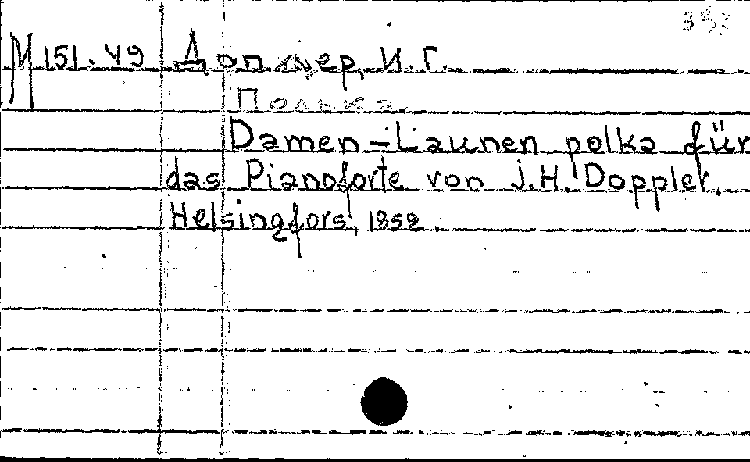 M 151.49 Допплер, И. Г.
Полька.
Damen-Launen polka für
das Pianoforte von J.H. Doppler.
Helsingfors,